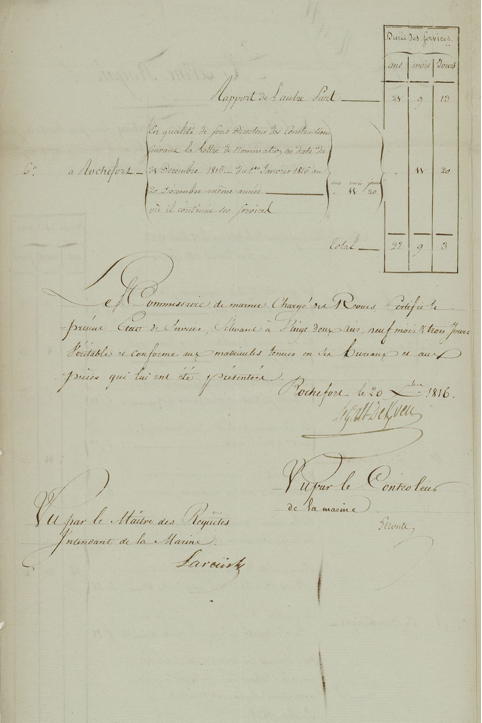 Durée des services.
ans mois Jours
Rapport de l'autre Part 21 9 13
En qualité de sous Directeur des Constructions
suivant la lettre de nomination en date du
Décembre 1815 du 1er Janvier 1816 au
6° à Rochefort
20 Décembre même année
où il continue ses services
ans mois jours
" 11 20
" 11 20
Total 22 9 3
Le Commissaire de marine Chargé des Revues Certifie le
présent Etat de services, s'élevant à Vingt deux ans, neuf mois & trois Jours
Véritable et conforme aux matricules tenues en ses bureaux et aux
pièces qui lui ont été présentées
Rochefort le 20 Xbre 1816.
Vu par le Controleur
de la marine
Vu par le Maître des Requêtes
Intendant de la Marine.